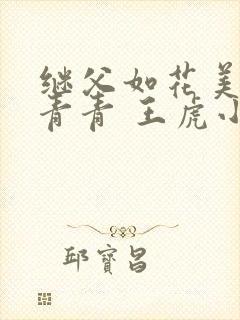 继父如花美
青青 王虎小
邱寶昌